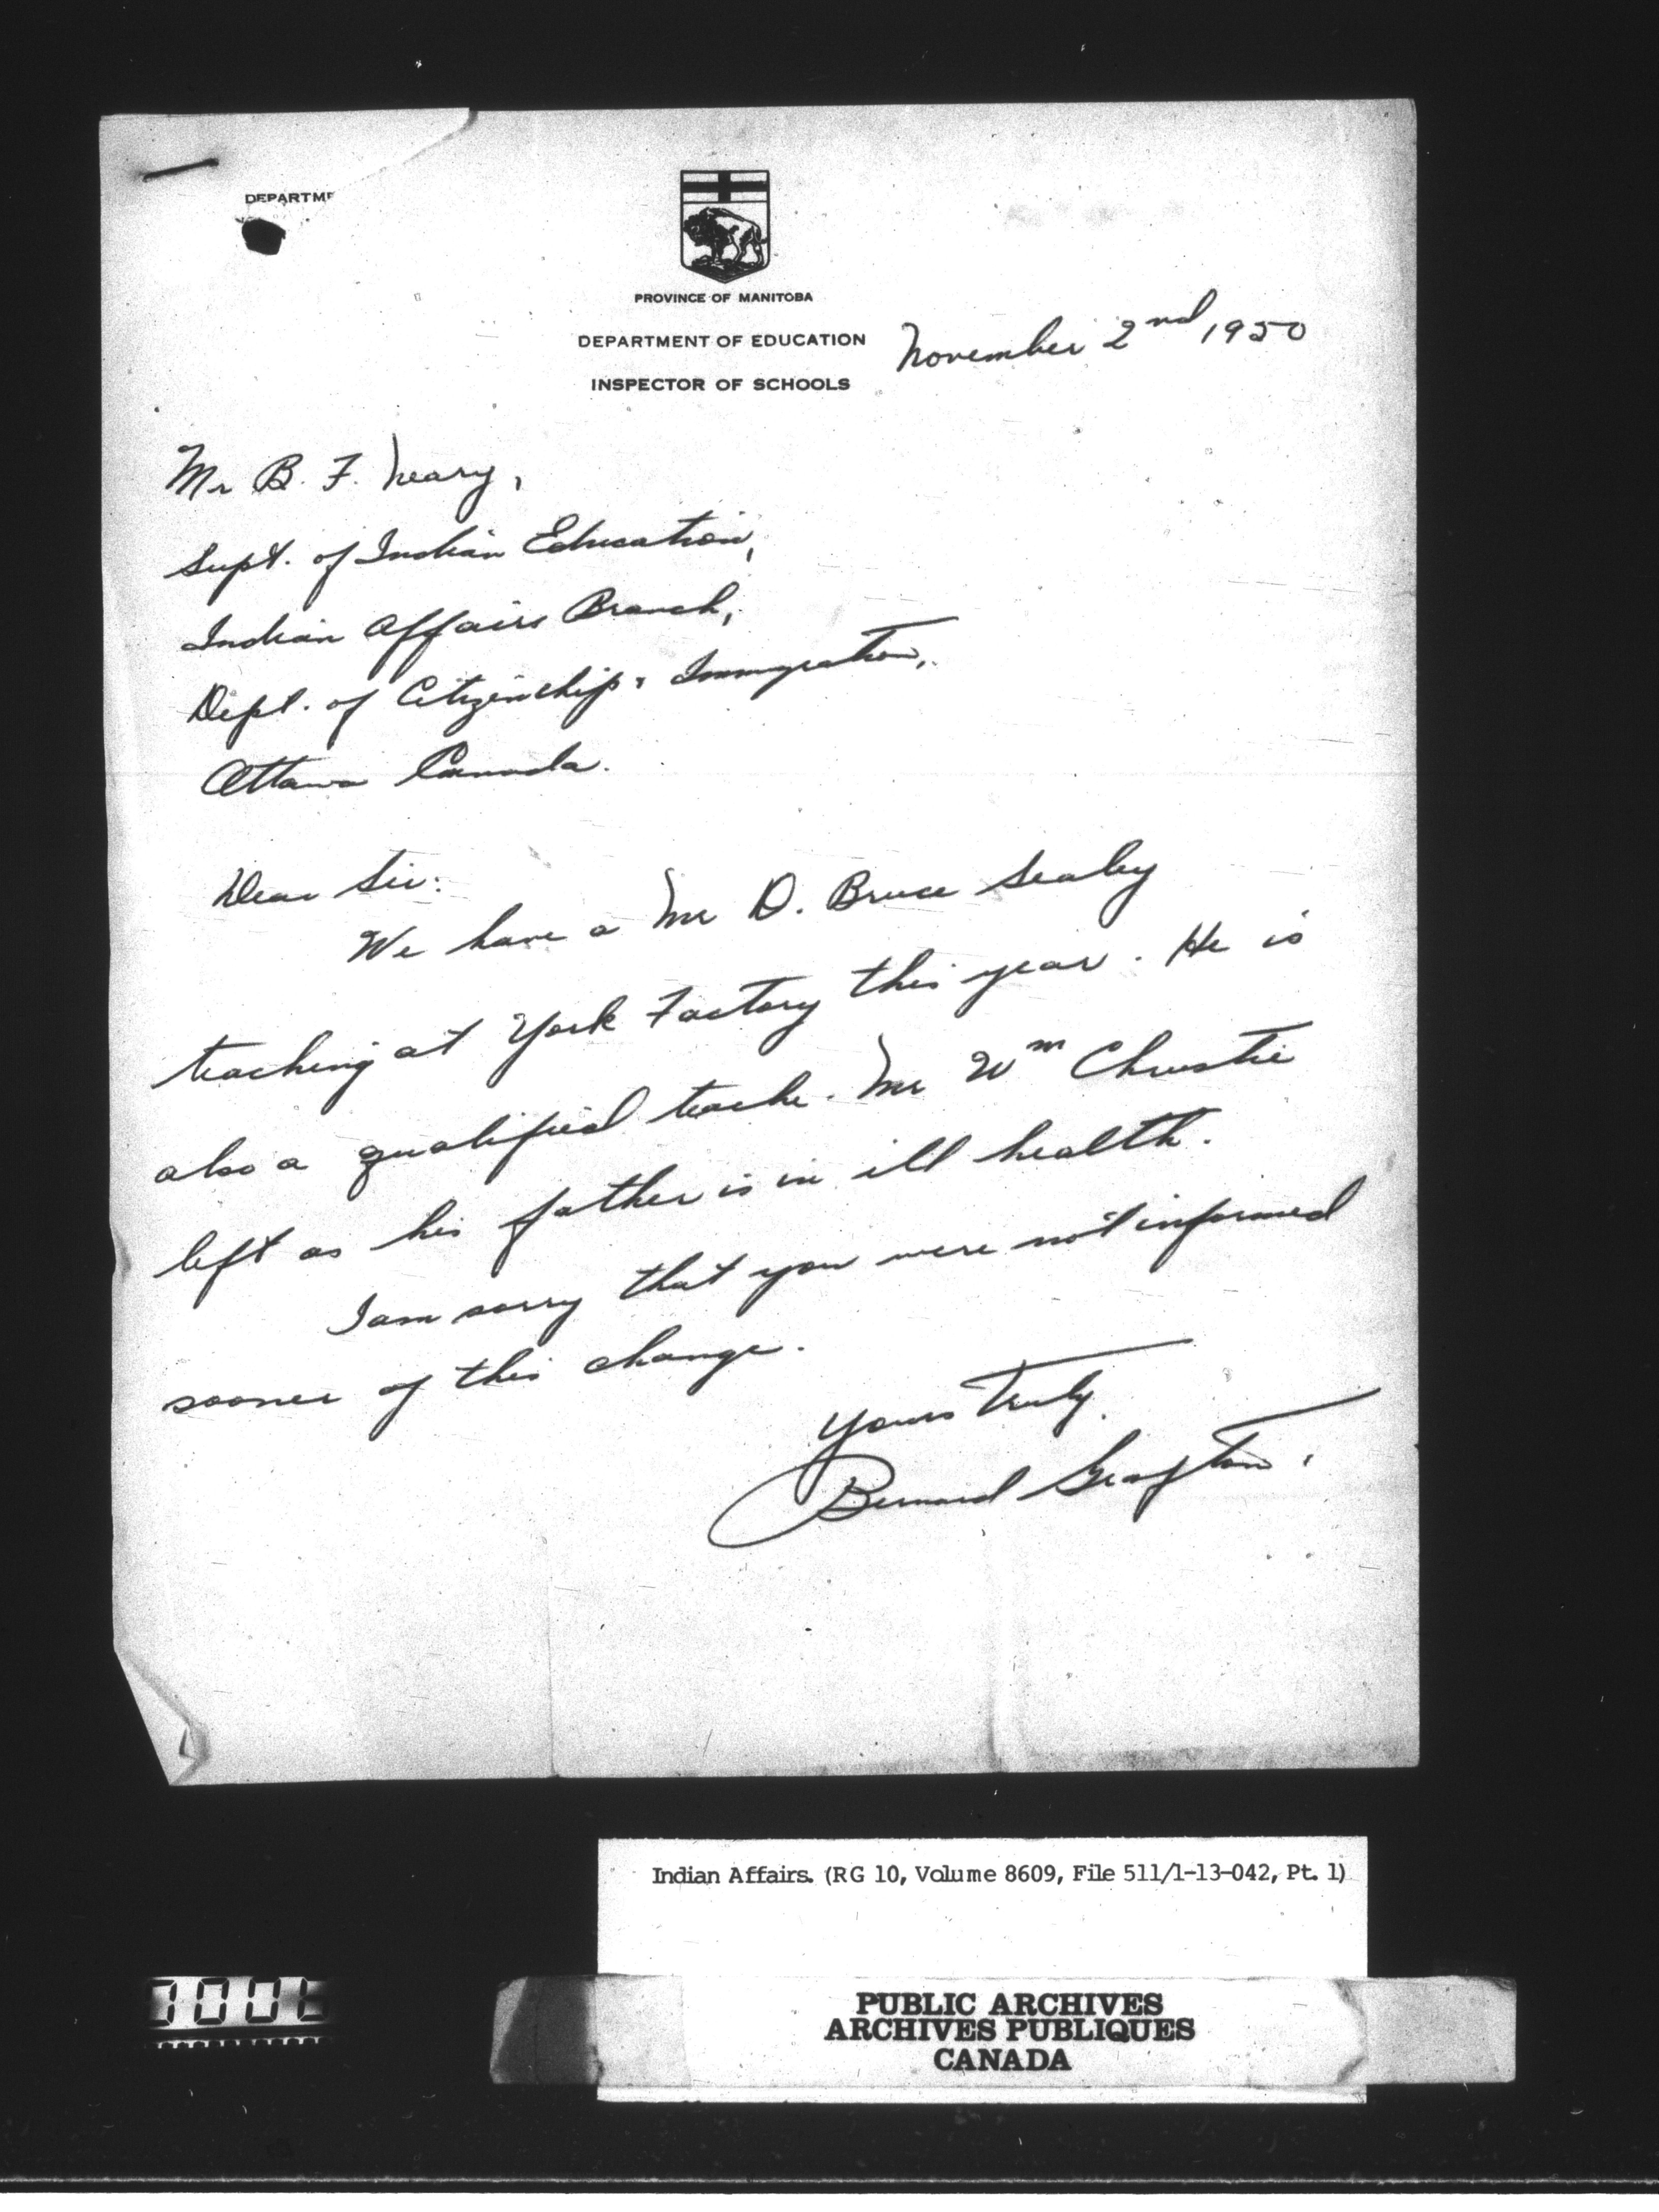 DEPARTME
PROVINCE OF MANITOBA
DEPARTMENT OF EDUCATION
INSPECTOR OF SCHOOLS
November 2nd, 1950
Mr B. F. Neary,
Supt. of Indian Education,
Indian Affairs Branch,
Dept. of Citizenship & Immigration,
Ottawa Canada.
Dear Sir:
We have a Mr D. Bruce Sealey
teaching at York Factory this year. He is
also a qualified teache. Mr Wm Christie
left as his father is in ill health.
I am sorry that you were not informed
sooner of this change.
Yours Truly.
Bernard Grafton.
Indian Affairs. (RG 10, Volume 8609, File 511/1-13-042, Pt. 1)
PUBLIC ARCHIVES
ARCHIVES PUBLIQUES
CANADA